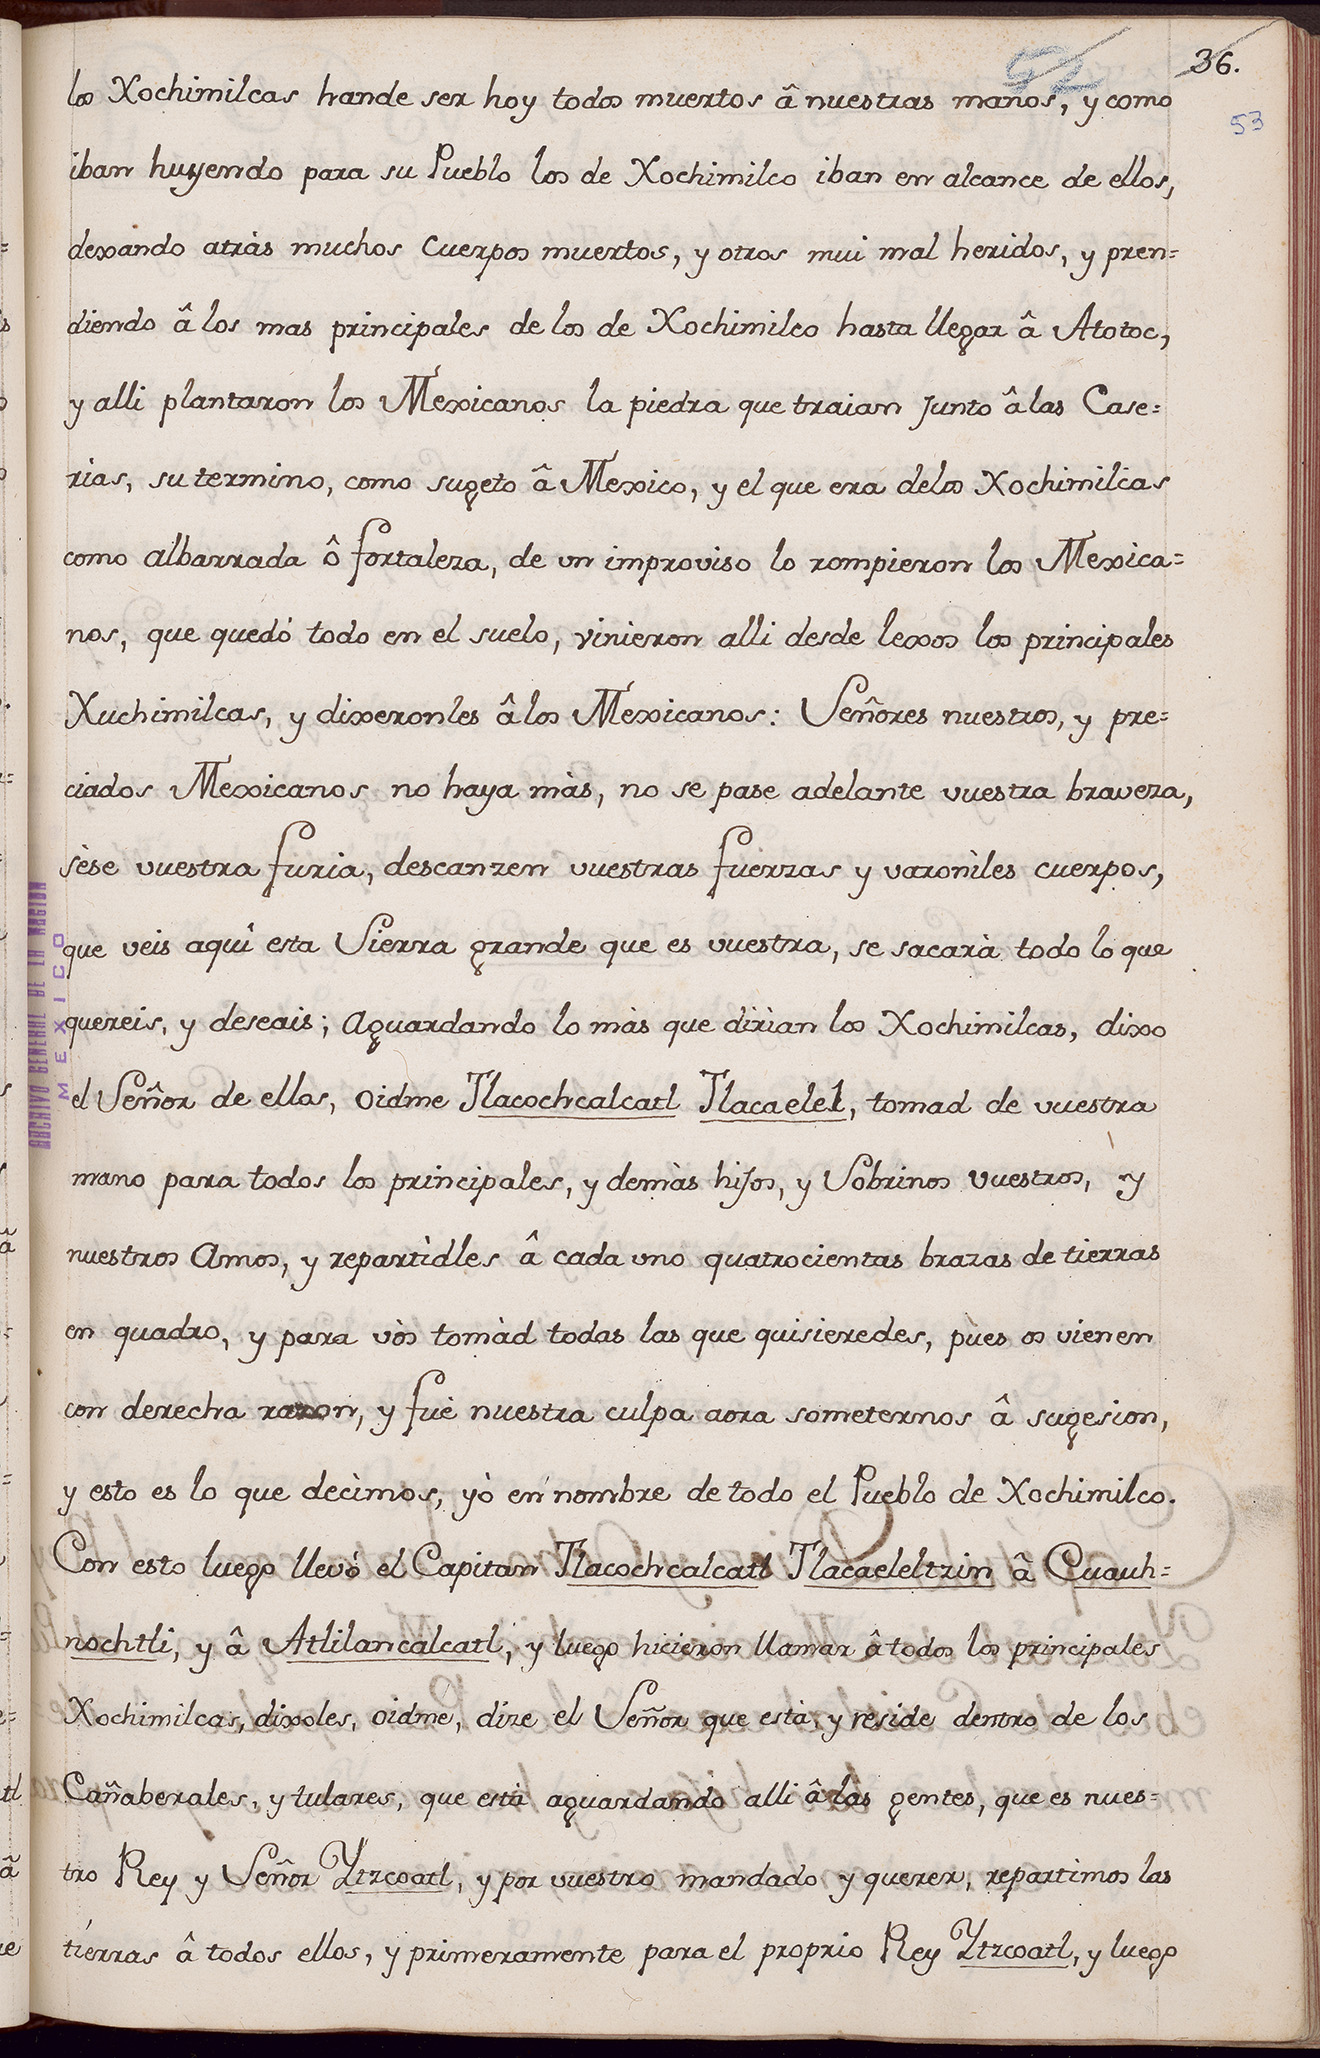 52
36.
53
los Xochimilcas hande ser hoy todos muertos â nuestras manos, y como
iban huyendo para su Pueblo los de Xochimilco iban en alcance de ellos,
dexando atràs muchos cuerpos muertos, y otros mui mal heridos, y pren=
diendo â los mas principales de los de Xochimilco hasta llegar â Atotoc,
y alli plantaron los Mexicanos la piedra que traian junto â las Case=
rias, su termino, como sugeto â Mexico, y el que era delos Xochimilcas
como albarrada ô fortaleza, de un improviso lo rompieron los Mexica=
nos, que quedó todo en el suelo, vinieron alli desde lexos los principales
Xuchimilcas, y dixeronles â los Mexicanos: Señores nuestros, y pre=
ciados Mexicanos no haya màs, no se pase adelante vuestra braveza,
sèse vuestra furia, descanzen vuestras fuerzas y varonìles cuerpos,
que veis aquî esta Sierra grande que es vuestra, se sacarà todo lo que
quereis, y deseais; aguardando lo màs que dirìan los Xochimilcas, dixo
el Señor de ellos, oidme Tlacochcalcatl Tlacaelel, tomad de vuestra
mano para todos los principales, y demàs hijos, y Sobrinos vuestros, y
nuestros Amos, y repartìdles â cada uno quatrocientas brazas de tierras
en quadro, y para vòs tomàd todas las que quisieredes, pùes os vienen
con derecha razon, y fuè nuestra culpa aora someternos â sugesion,
y esto es lo que decìmos, yò en nombre de todo el Pueblo de Xochimilco.
Con esto luego llevó el Capitan Tlacochcalcatl Tlacaeleltzin â Cuauh=
nochtli, y â Atlilancalcatl, y luego hicieron llamar â todos los principales
Xochimilcas, dixoles, oidme, dize el Señor que està, y reside dentro de los
Cañaberales, y tulares, que està aguardando alli â las gentes, que es nues=
tro Rey y Señor Ytzcoatl, y por vuestro mandado y querer, repartimos las
tierras â todos ellos, y primeramente para el proprio Rey Ytzcoatl, y luego
ARCHIVO GENERAL DE LA NACION
MEXICO